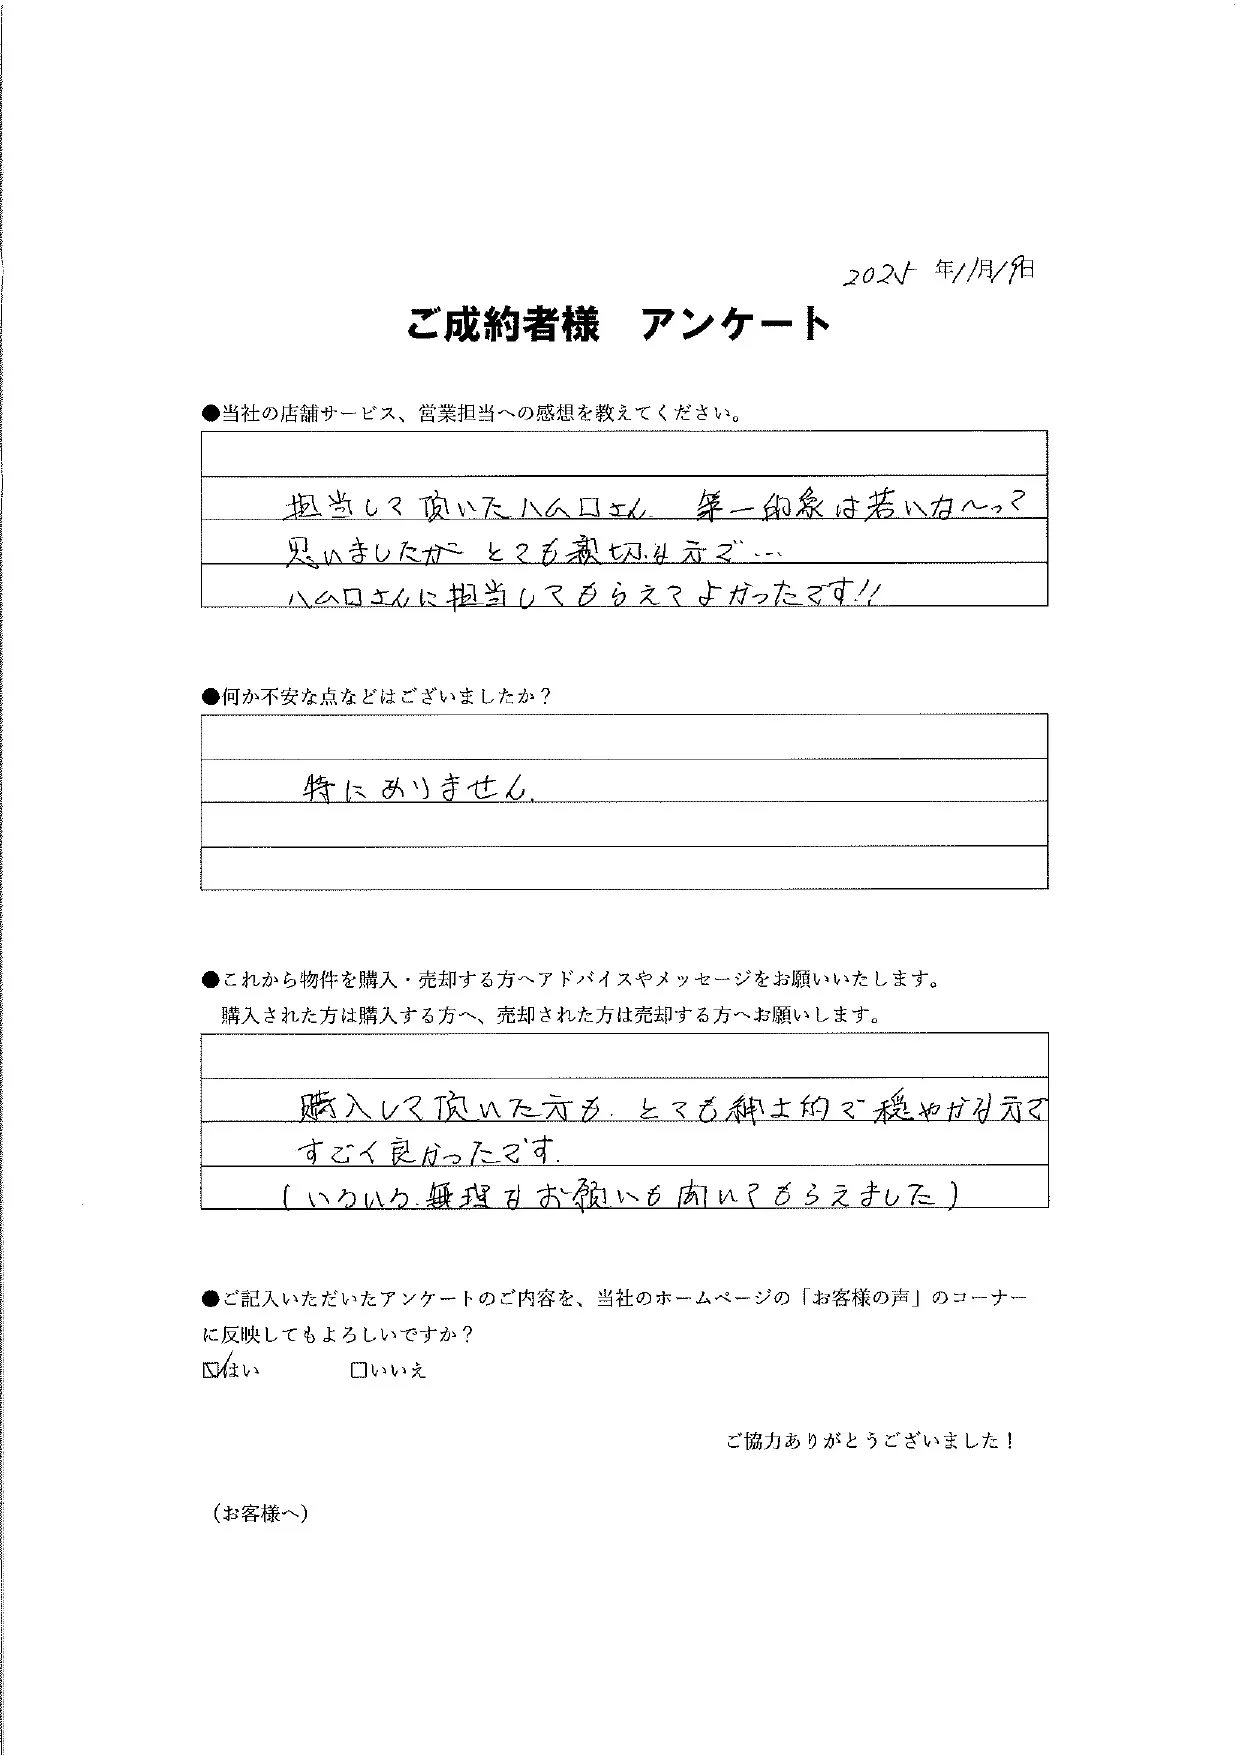 2025年11月19日
ご成約者様　アンケート
●当社の店舗サービス、営業担当への感想を教えてください。
担当して頂いたハムロさん 第一印象は若いな〜って
思いましたが とても親切な方で…
ハムロさんに担当してもらえてよかったです!!
●何か不安な点などはございましたか？
特にありません.
●これから物件を購入・売却する方へアドバイスやメッセージをお願いいたします。
購入された方は購入する方へ、売却された方は売却する方へお願いします。
購入して頂いた方も、とても紳士的で穏やかな方で
すごく良かったです.
(いろいろ無理なお願いも聞いてもらえました)
●ご記入いただいたアンケートのご内容を、当社のホームページの「お客様の声」のコーナー
に反映してもよろしいですか？
☑はい　□いいえ
ご協力ありがとうございました！
（お客様へ）